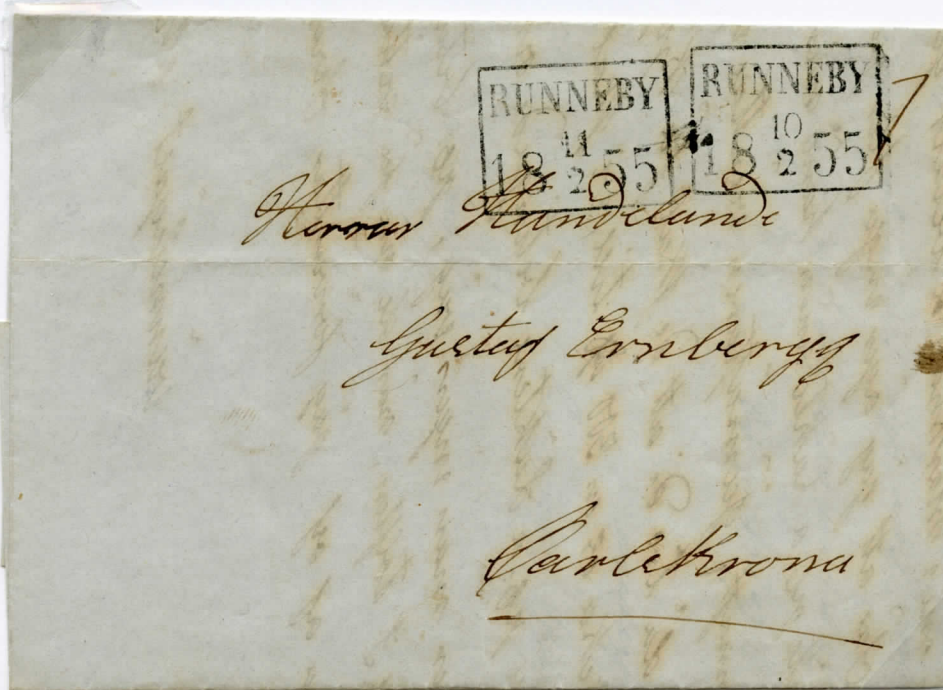 RUNNEBY
11
18 2 55
RUNNEBY
10
18 2 55
Herrar Handelande
Gustaf Ernbergg
Carlskrona